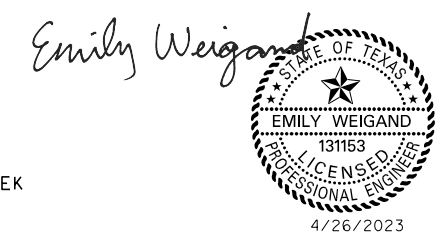 Emily Weigand
STATE OF TEXAS
EMILY WEIGAND
131153
LICENSED
PROFESSIONAL ENGINEER
EK
4/26/2023